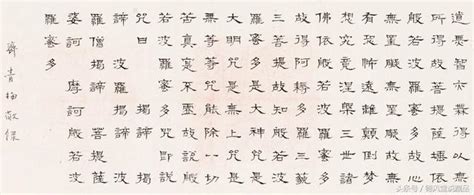 道無智亦無得以無
所得故菩提薩埵依
般若波羅蜜多故心
無罣礙無罣礙故無
有恐怖遠離顛倒夢
想究竟涅槃三世諸
佛依般若波羅蜜多
故得阿耨多羅三藐
三菩提故知般若波
羅蜜多是大神咒是
大明咒是無上咒是
無等等咒能除一切
苦真實不虛故說般
若波羅蜜多咒即說
咒曰
揭諦揭諦波羅揭諦
波羅僧揭諦菩提薩
婆訶摩訶般若波
羅蜜多
头条号